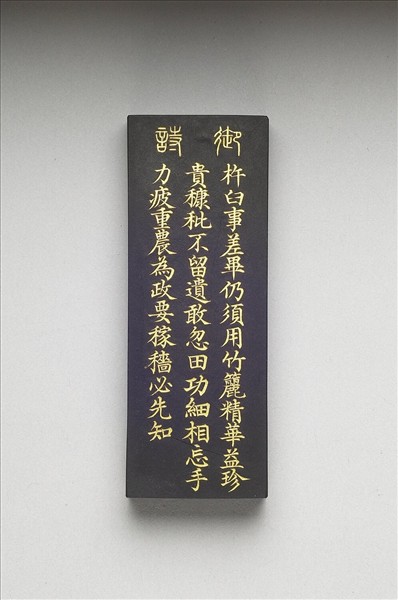 御詩
杵臼事差畢仍須用竹籭精華益珍
貴糠秕不留遺敢忽田功細相忘手
力疲重農為政要稼穡必先知